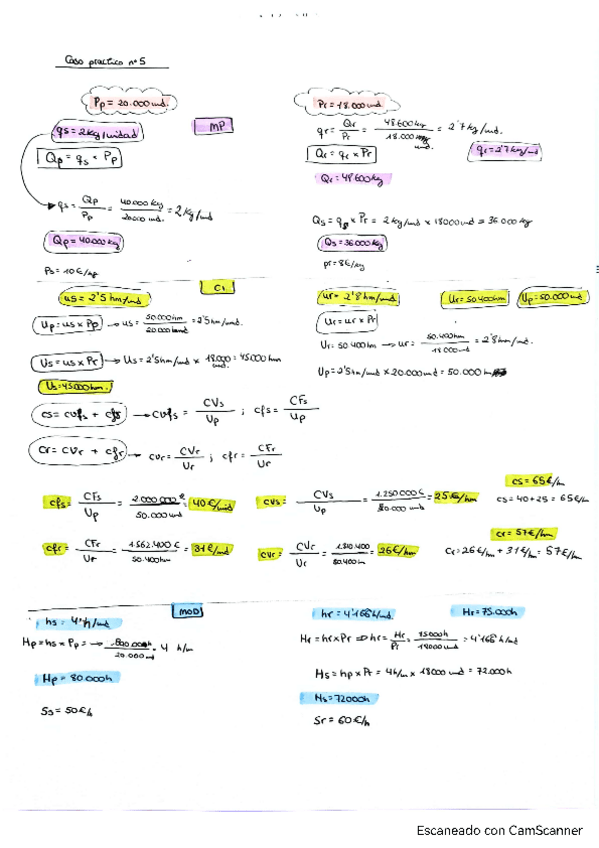 Caso práctico nº 5
Pp = 20.000 und.
Pr = 18.000 und
qs = 2kg/unidad
MP
qr = Qr/Pr = 48.600kg/18.000 und. = 2'7 kg/und.
Qp = qs × Pp
Qr = qr × Pr
qr = 2'7 kg/und
Qr = 48600kg
qs = Qp/Pp = 40.000kg/20.000 und. = 2 kg/und
Qs = qs × Pr = 2 kg/und × 18000 und = 36.000kg
Qp = 40.000kg
Qs = 36.000kg
Ps = 10 €/kg
pr = 8€/kg
us = 2'5 hm/und
CI
ur = 2'8 hm/und
Ur = 50.400hm
Up = 50.000
Up = us × Pp → us = 50.000hm/20.000 und = 2'5hm/und.
Ur = ur × Pr
Ur = 50.400 hm → ur = 50.400hm/18.000und = 2'8hm/und.
Us = us × Pr → Us = 2'5hm/und × 18.000 = 45000 hm
Up = 2'5hm/und × 20.000 und = 50.000 hm
Us = 45.000hm.
cs = cvfs + cfs → cvfs = CVs/Up ; cfs = CFs/Up
cr = cvr + cfr → cvr = CVr/Ur ; cfr = CFr/Ur
cs = 65€/h
cfs = CFs/Up = 2.000.000€/50.000 und = 40€/und
cvs = CVs/Up = 1.250.000€/50.000 und = 25€/hm
cs = 40 + 25 = 65€/h
cr = 57€/h
cfr = CFr/Ur = 1.562.400€/50.400hm = 31€/und
cvr = CVr/Ur = 1.310.400/50.400h = 26€/hm
Cr = 26€/hm + 31€/hm = 57€/h
MOD
hs = 4 h/und
hr = 4'166 h/und.
Hr = 75.000h
Hp = hs × Pp = → 80.000h/20.000 und = 4 h/m
Hr = hr × Pr ⇒ hr = Hr/Pr = 75000h/18000 und = 4'166h/und.
Hs = hp × Pr = 4h/m × 18000 und = 72.000h
Hp = 80.000h
Hs = 72000h
Ss = 50€/h
Sr = 60€/h
Escaneado con CamScanner